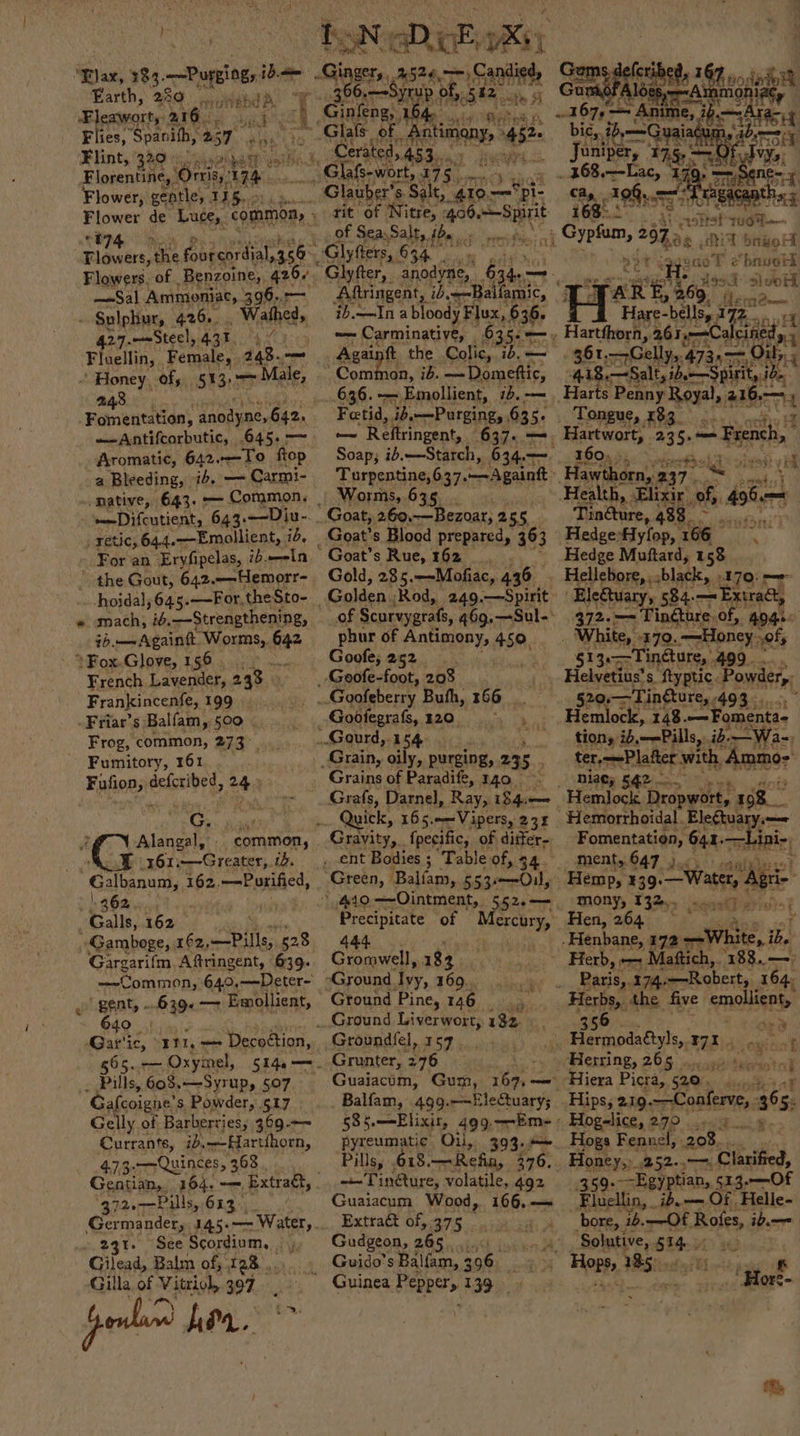 INDEX.
Flax, 183.—Purging, ib.—
Earth, 280
Fleawort, 216
Flies, Spanish, 257
Flint, 320
Florentine, Orris, 174
Flower, gentle, 115
Flower de Luce, common,
174
Flowers, the four cordial, 356
Flowers of Benzoine, 426.
—Sal Ammoniac, 396.—
Sulphur, 426. Washed,
427.—Steel, 431
Fluellin, Female, 248.—
Honey of, 513,—Male,
248
Fomentation, anodyne, 642.
—Antiscorbutic, 645.—
Aromatic, 642.—To stop
a Bleeding, ib. — Carmi-
native, 643. — Common.
—Discutient, 643.—Diu-
retic, 644.—Emollient, ib.
For an Eryfipelas, ib.—In
the Gout, 642.—Hemorr-
hoidal, 645.—For the Sto-
mach, ib.—Strengthening,
ib.—Against Worms, 642
Fox-Glove, 156
French Lavender, 238
Frankincense, 199
Friar's Balsam, 500
Frog, common, 273
Fumitory, 161
Fusion, described, 24
G.
Galangal, common,
161.—Greater, ib.
Galbanum, 162.—Purified,
362
Galls, 162
Gamboge, 162,—Pills, 528
Gargarism Astringent, 639.
—Common, 640,—Deter-
gent, 639.— Emollient,
640
Garlic, 111, — Decoction,
565.— Oxymel, 514. —
Pills, 608.—Syrup, 507
Gascoigne's Powder, 517
Gelly of Barberries, 369.—
Currants, ib.—Hartshorn,
473.—Quinces, 368
Gentian, 164.— Extract,
372.—Pills, 613
Germander, 145.— Water,
231. See Scordium.
Gilead, Balm of, 128
Gilla of Vitriol, 397
Ginger, 252.—Candied,
366.—Syrup of, 512
Ginseng, 164
Glass of Antimony, 452.
Cerated, 453
Glass-wort, 175
Glauber's Salt, 410.—Spi-
rit of Nitre, 406.—Spirit
of Sea Salt, ib.
Glysters, 634
Glyster, anodyne, 634.—
Astringent, ib.—Balsamic,
ib.—In a bloody Flux, 636.
— Carminative, 635.—
Against the Colic, ib. —
Common, ib. — Domestic,
636.— Emollient, ib.—
Fœtid, ib.—Purging, 635.
— Restringent, 637. —
Soap, ib.—Starch, 634.—
Turpentine, 637.—Against
Worms, 635
Goat, 260.—Bezoar, 255
Goat's Blood prepared, 363
Goat's Rue, 162
Gold, 285.—Mosiac, 436
Golden Rod, 249.—Spirit
of Scurvygrass, 469.—Sul-
phur of Antimony, 450
Goose, 252
Goose-foot, 208
Gooseberry Bush, 166
Goosegrass, 120
Gourd, 154
Grain, oily, purging, 235
Grains of Paradise, 140
Grass, Darnel, Ray, 184.—
Quick, 165.—Vipers, 231
Gravity, specific, of differ-
ent Bodies; Table of, 34
Green, Balsam, 553.—Oil,
410—Ointment, 552.—
Precipitate of Mercury,
444
Gromwell, 183
Ground Ivy, 169
Ground Pine, 146
Ground Liverwort, 182
Groundsel, 157
Grunter, 276
Guaiacum, Gum, 167,—
Balsam, 499.—Electuary,
585.—Elixir, 499.—Em-
pyreumatic Oil, 393.—
Pills, 618.—Resin, 376.
—Tincture, volatile, 492
Guaiacum Wood, 166,—
Extract of, 375
Gudgeon, 265
Guido's Balsam, 396
Guinea Pepper, 139
Gems described, 167
Gum of Aloes,—Ammoniac,
167,— Anime, ib.—Ara-
bic, ib.—Guaiacum, ib.—
Juniper, 175,—Of Ivy,
168.—Lac, 179.—Sene-
ca, 106.—Tragacanth,
168
Gypsum, 297
H.
HARE, 269.
Hare-bells, 172
Hartshorn, 261,—Calcined,
361.—Gelly, 473.—Oil,
418.—Salt, ib.—Spirit, ib.
Harts Penny Royal, 216.—
Tongue, 183
Hartwort, 235.—French,
160
Hawthorn, 237
Health, Elixir of, 496.—
Tincture, 488
Hedge-Hyssop, 166
Hedge Mustard, 158
Hellebore, black, 170.—
Electuary, 584.—Extract,
372.— Tincture of, 494.
White, 170.—Honey of,
513.—Tincture, 499
Helvetius's styptic Powder,
520.—Tincture, 493
Hemlock, 148.—Fomenta-
tion, ib.—Pills, ib.—Wa-
ter.—Plaster with Ammo-
niac, 542
Hemlock Dropwort, 198
Hemorrhoidal Electuary.—
Fomentation, 641.—Lini-
ment, 647
Hemp, 139.—Water, Agri-
mony, 132
Hen, 264
Henbane, 172—White, ib.
Herb, — Mastich, 188.—
Paris, 174.—Robert, 164.
Herbs, the five emollient,
356
Hermodactyls, 171
Herring, 265
Hiera Picra, 520
Hips, 219.—Conserve, 365.
Hog-lice, 270
Hogs Fennel, 208
Honey, 252.—Clarified,
359.—Egyptian, 513.—Of
Fluellin, ib.— Of Helle-
bore, ib.—Of Roses, ib.—
Solutive, 514
Hops, 185
Hore-